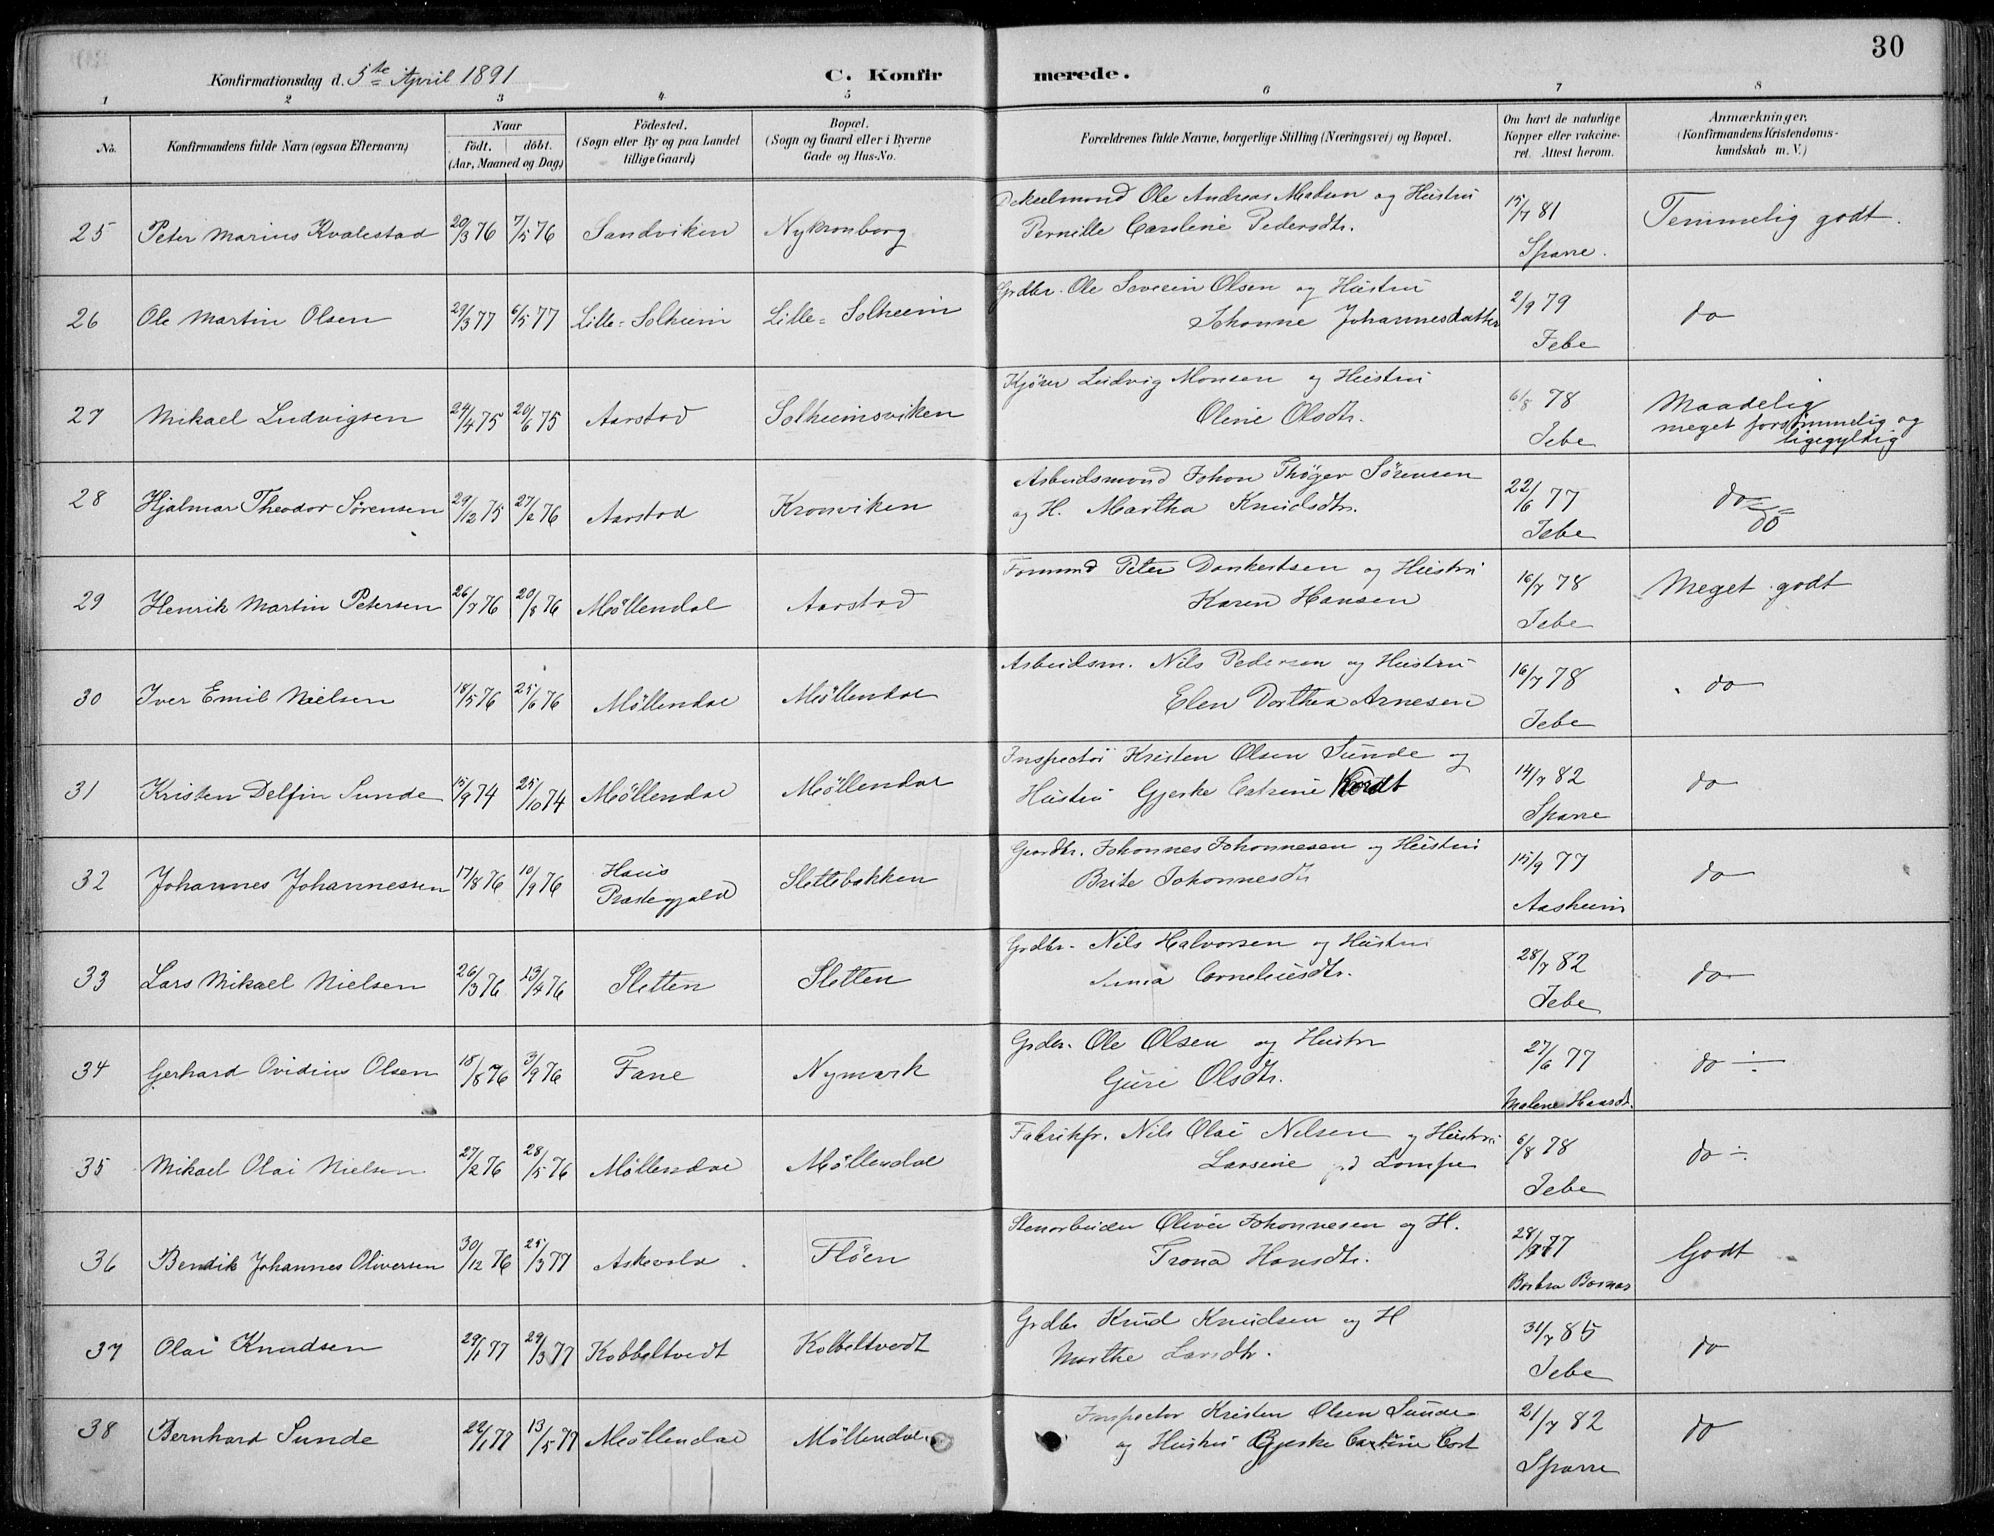 30
Konfirmationsdag d. 5te April 1891
C. Konfir merede.
1 2 3 4 5 6 7 8
No.
Konfirmandens fulde Navn (ogsaa Efternavn)
Naar
født. døbt.
(Aar, Maaned og Dag)
Fødested.
(Sogn eller By og paa Landet
tillige Gaard)
Bopæl.
(Sogn og Gaard eller i Byerne
Gade og Hus-No.
Forældrenes fulde Navne, borgerlige Stilling (Næringsvei) og Bopæl.
Om havt de naturlige
Kopper eller vakcine-
ret. Attest herom.
Anmærkninger.
(Konfirmandens Kristendoms-
kundskab m. V.)
25 Peter Marius Kvalestad 20/3 76 7/5 76 Sandviken Nykronborg
Ole Andreas Madsen og Hustru
Pernille Caroline Pedersdtr.
15/7 81
Sparre.
Temmelig godt.
26 Ole Martin Olsen 29/3 77 6/5 77 Lille=Solheim Lille=Solheim
Grdbr. Ole Severin Olsen og Hustru
Johanne Johannesdatter
2/9 79
Jebe
do
27 Mikael Ludvigsen 24/4 75 20/6 75 Aarstad Solheimsviken
Kjører Ludvig Monsen og Hustru
Oline Olsdtr.
6/8 78
Jebe
Maadelig
meget forsømmelig og
ligegyldig
28 Hjalmar Theodor Sørensen 29/12 75 27/2 76 Aarstad Kronviken
Arbeidsmand Johan Thøger Sørensen
og H. Martha Knudsdtr.
22/6 77
Jebe
do
do
29 Henrik Martin Petersen 26/7 76 20/8 76 Møllendal Aarstad
Formand Peter Dankertsen og Hustru
Karen Hansen
16/7 78
Jebe
Meget godt
30 Iver Emil Nielsen 18/5 76 25/6 76 Møllendal Møllendal
Arbeidsm. Nils Pedersen og Hustru
Elen Dorthea Arnesen
16/7 78
Jebe
do
31 Kristen Delfin Sunde 15/9 74 25/10 74 Møllendal Møllendal
Inspector Kristen Olsen Sunde og
Hustru Gjeske Catrine Kordt
14/7 82
Sparre
do
32 Johannes Johannessen 17/8 76 10/9 76 Haus
Præstegjeld
Slettebakken
Gaardbr. Johannes Johannesen og Hustru
Brite Johannesdtr
15/9 77
Aasheim
do
33 Lars Mikael Nielsen 26/3 76 13/4 76 Sletten Sletten
Grdbr. Nils Halvorsen og Hustru
Anna Corneliusdtr.
28/7 82
Jebe
do
34 Gerhard Ovidius Olsen 18/8 76 3/9 76 Fane Nymark
Grdbr. Ole Olsen og Hustru
Guri Olsdtr.
27/6 77
Malene Haarsdtr.
do
35 Mikael Olai Nielsen 27/2 76 28/5 76 Møllendal Møllendal
Fabrikfr. Nils Olai Nilsen og Hustru
Larsine fd Lampe
6/8 78
Jebe
do
36 Bendik Johannes Oliversen 30/12 76 25/3 77 Askevold Fløen
Stenarbeider Oliver Johannesen og H.
Trona Hansdtr.
28/ 77
Godt
37 Olai Knudsen 29/1 77 29/3 77 Kobbeltvedt Kobbeltvedt
Grdbr Knud Knudsen og H
Marthe Larsdtr.
31/7 85
Jebe
do
38 Bernhard Sunde 22/1 77 13/5 77 Møllendal Møllendal
Inspector Kristen Olsen Sunde
og Hustru Gjeske Catrine Cort
21/7 82
Sparre
do